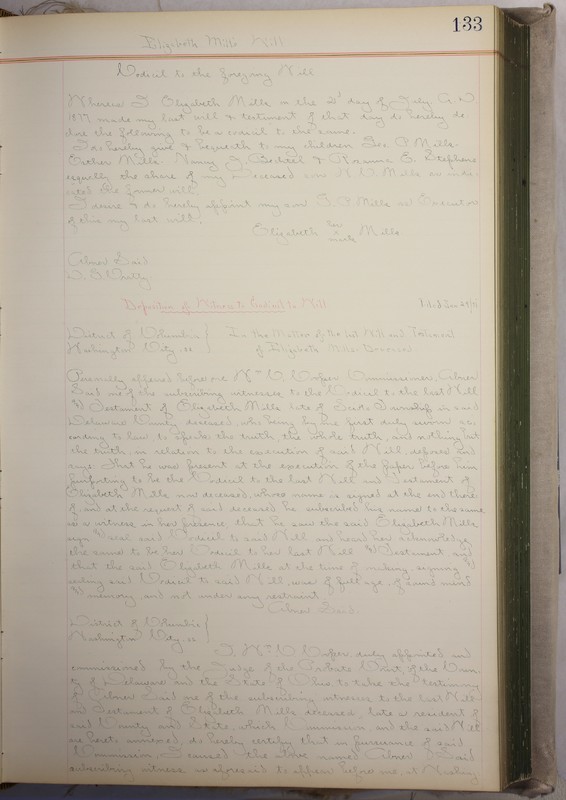 133
Elizabeth Mills Will
Codicil to the foregoing Will
Whereas I Elizabeth Mills on the 2d day of July A.D.
1877 made my last will & testiment of that day do hereby de
clare the following to be a codicil to the same.
I do hereby give & bequeath to my children Geo. P. Mills
Esther Mills Nancy J. & E. Stephens
equally the share of my deceased son Mills as indi
cated the former will
I desire & do hereby appoint my son Mills as Executor
of this my last will.
Elizabeth her mark Mills
Abner Said
Deposition of Witness to Codicil to Will
District of Columbia }
Washington City ss }
In the Matter of the last Will and Testament
of Elizabeth Mills Deceased
Personally appeared before me Wm Commissioner, Abner
Said one of the subscribing witnesses to the Codicil to the last Will
& Testament of Elizabeth Mills late of Township in said
Delaware County deceased, who being by me first duly sworn ac
cording to law to speak the truth, the whole truth, and nothing but
the truth, in relation to the execution of said Will, deposes and
says: That he was present at the execution of the paper before him
purporting to be the Codicil to the last Will and Testament of
Elizabeth Mills now deceased, whose name is signed at the end there
of and at the request of said deceased he subscribed his name to the same
as a witness in her presence, that he saw the said Elizabeth Mills
sign & seal said Codicil to said Will and heard her acknowledge
the same to be her Codicil to her last Will & Testament, and
that the said Elizabeth Mills at the time of making, signing &
sealing said Codicil to said Will, was of full age, of sound mind
& memory, and not under any restraint.
Abner Said.
District of Columbia }
Washington City, ss. }
I, Wm duly appointed and
commissioned by the Judge of the Probate Court of the Coun-
ty of Delaware and the State of Ohio to take the testimony
of Abner Said one of the subscribing witnesses to the last Will
and Testament of Elizabeth Mills deceased, late a resident of
said County and State, which Commission and the said Will
are hereto annexed, do hereby certify that in pursuance of said
Commission, I caused the above named Abner Said
subscribing witness as aforesaid to appear before me, at Washing